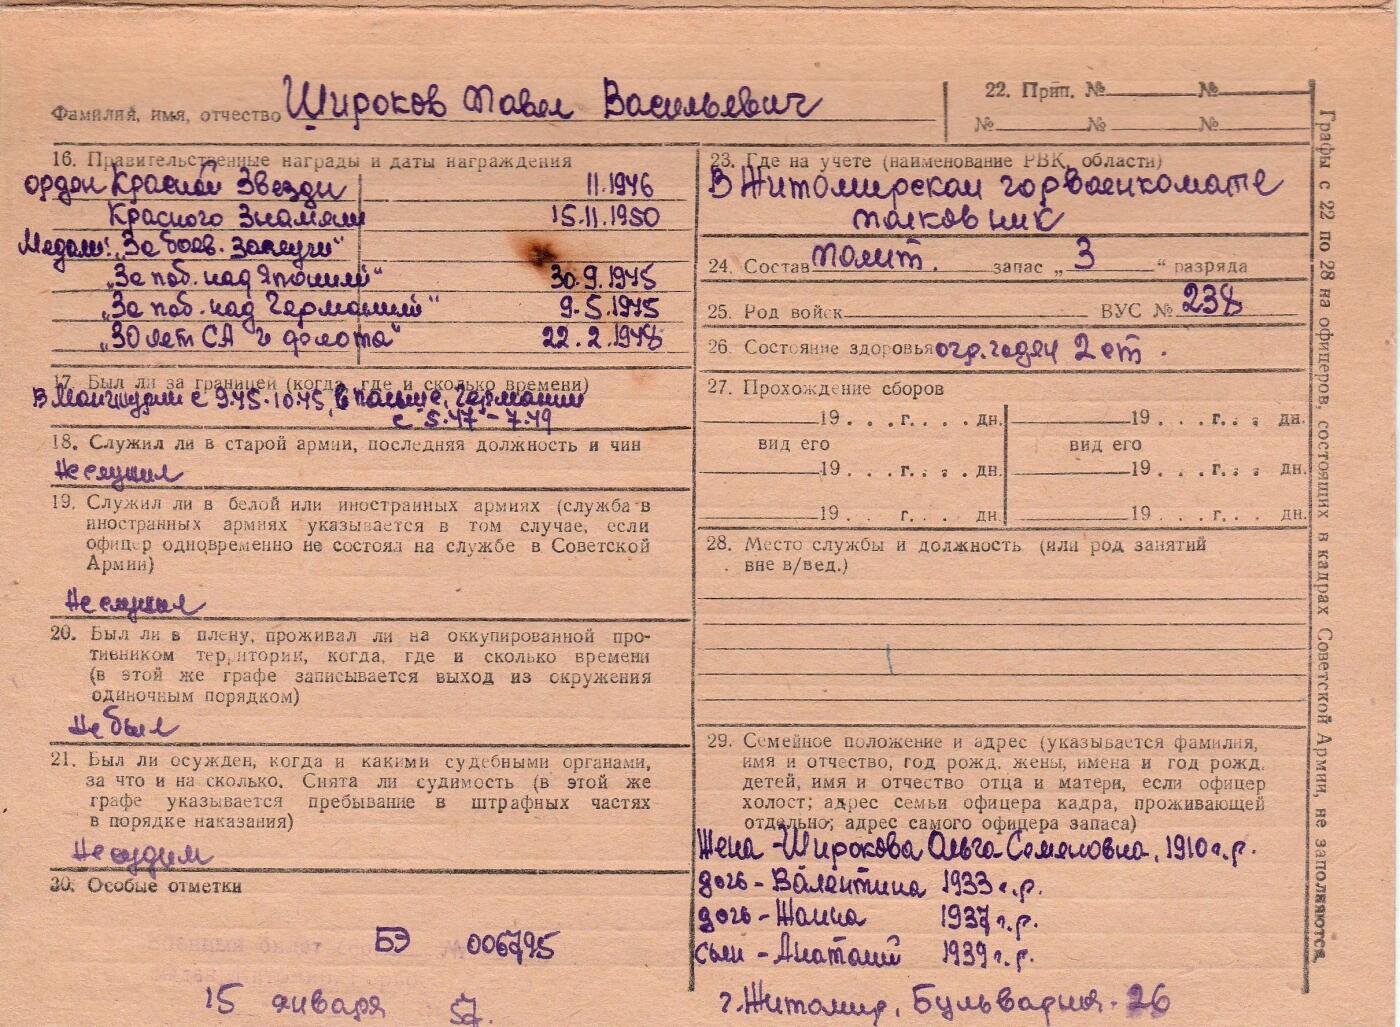 Фамилия, имя, отчество Широков Павел Васильевич
22. Прип. № №
№ № №
16. Правительственные награды и даты награждения
орден Красной Звезды 11.1946
Красного Знамени 15.11.1950
Медали: „За боев. заслуги"
„За поб. над Японией" 30.9.1945
„За поб. над Германией" 9.5.1945
„30 лет СА и флота" 22.2.1948
17. Был ли за границей (когда, где и сколько времени)
В Манчжурии с 9.45-10.45, в Польше, Германии
с 5.47-7.49
18. Служил ли в старой армии, последняя должность и чин
Не служил
19. Служил ли в белой или иностранных армиях (служба в
иностранных армиях указывается в том случае, если
офицер одновременно не состоял на службе в Советской
Армии)
Не служил
20. Был ли в плену, проживал ли на оккупированной про-
тивником территории, когда, где и сколько времени
(в этой же графе записывается выход из окружения
одиночным порядком)
Не был
21. Был ли осужден, когда и какими судебными органами,
за что и на сколько. Снята ли судимость (в этой же
графе указывается пребывание в штрафных частях
в порядке наказания)
Не судим
30. Особые отметки
БЭ 006795
15 января 57.
23. Где на учете (наименование РВК, области)
В Житомирском горвоенкомате
полковник
24. Состав полит. запас „ 3 " разряда
25. Род войск ВУС № 238
26. Состояние здоровья огр. годен 2 ст.
27. Прохождение сборов
19 . . . г. . . . дн. 19 . . . г. . . . дн.
вид его вид его
19 . . . г. . . . дн. 19 . . . г. . . . дн.
19 . . . г. . . . дн. 19 . . . г. . . . дн.
28. Место службы и должность (или род занятий
вне в/вед.)
29. Семейное положение и адрес (указывается фамилия,
имя и отчество, год рожд. жены, имена и год рожд.
детей, имя и отчество отца и матери, если офицер
холост; адрес семьи офицера кадра, проживающей
отдельно; адрес самого офицера запаса)
Жена - Широкова Ольга Семеновна, 1910 г.р.
дочь - Валентина 1933 г.р.
дочь - Жанна 1937 г.р.
сын - Анатолий 1939 г.р.
г. Житомир, Бульварная 26
Графы с 22 по 28 на офицеров, состоящих в кадрах Советской Армии, не заполняются.